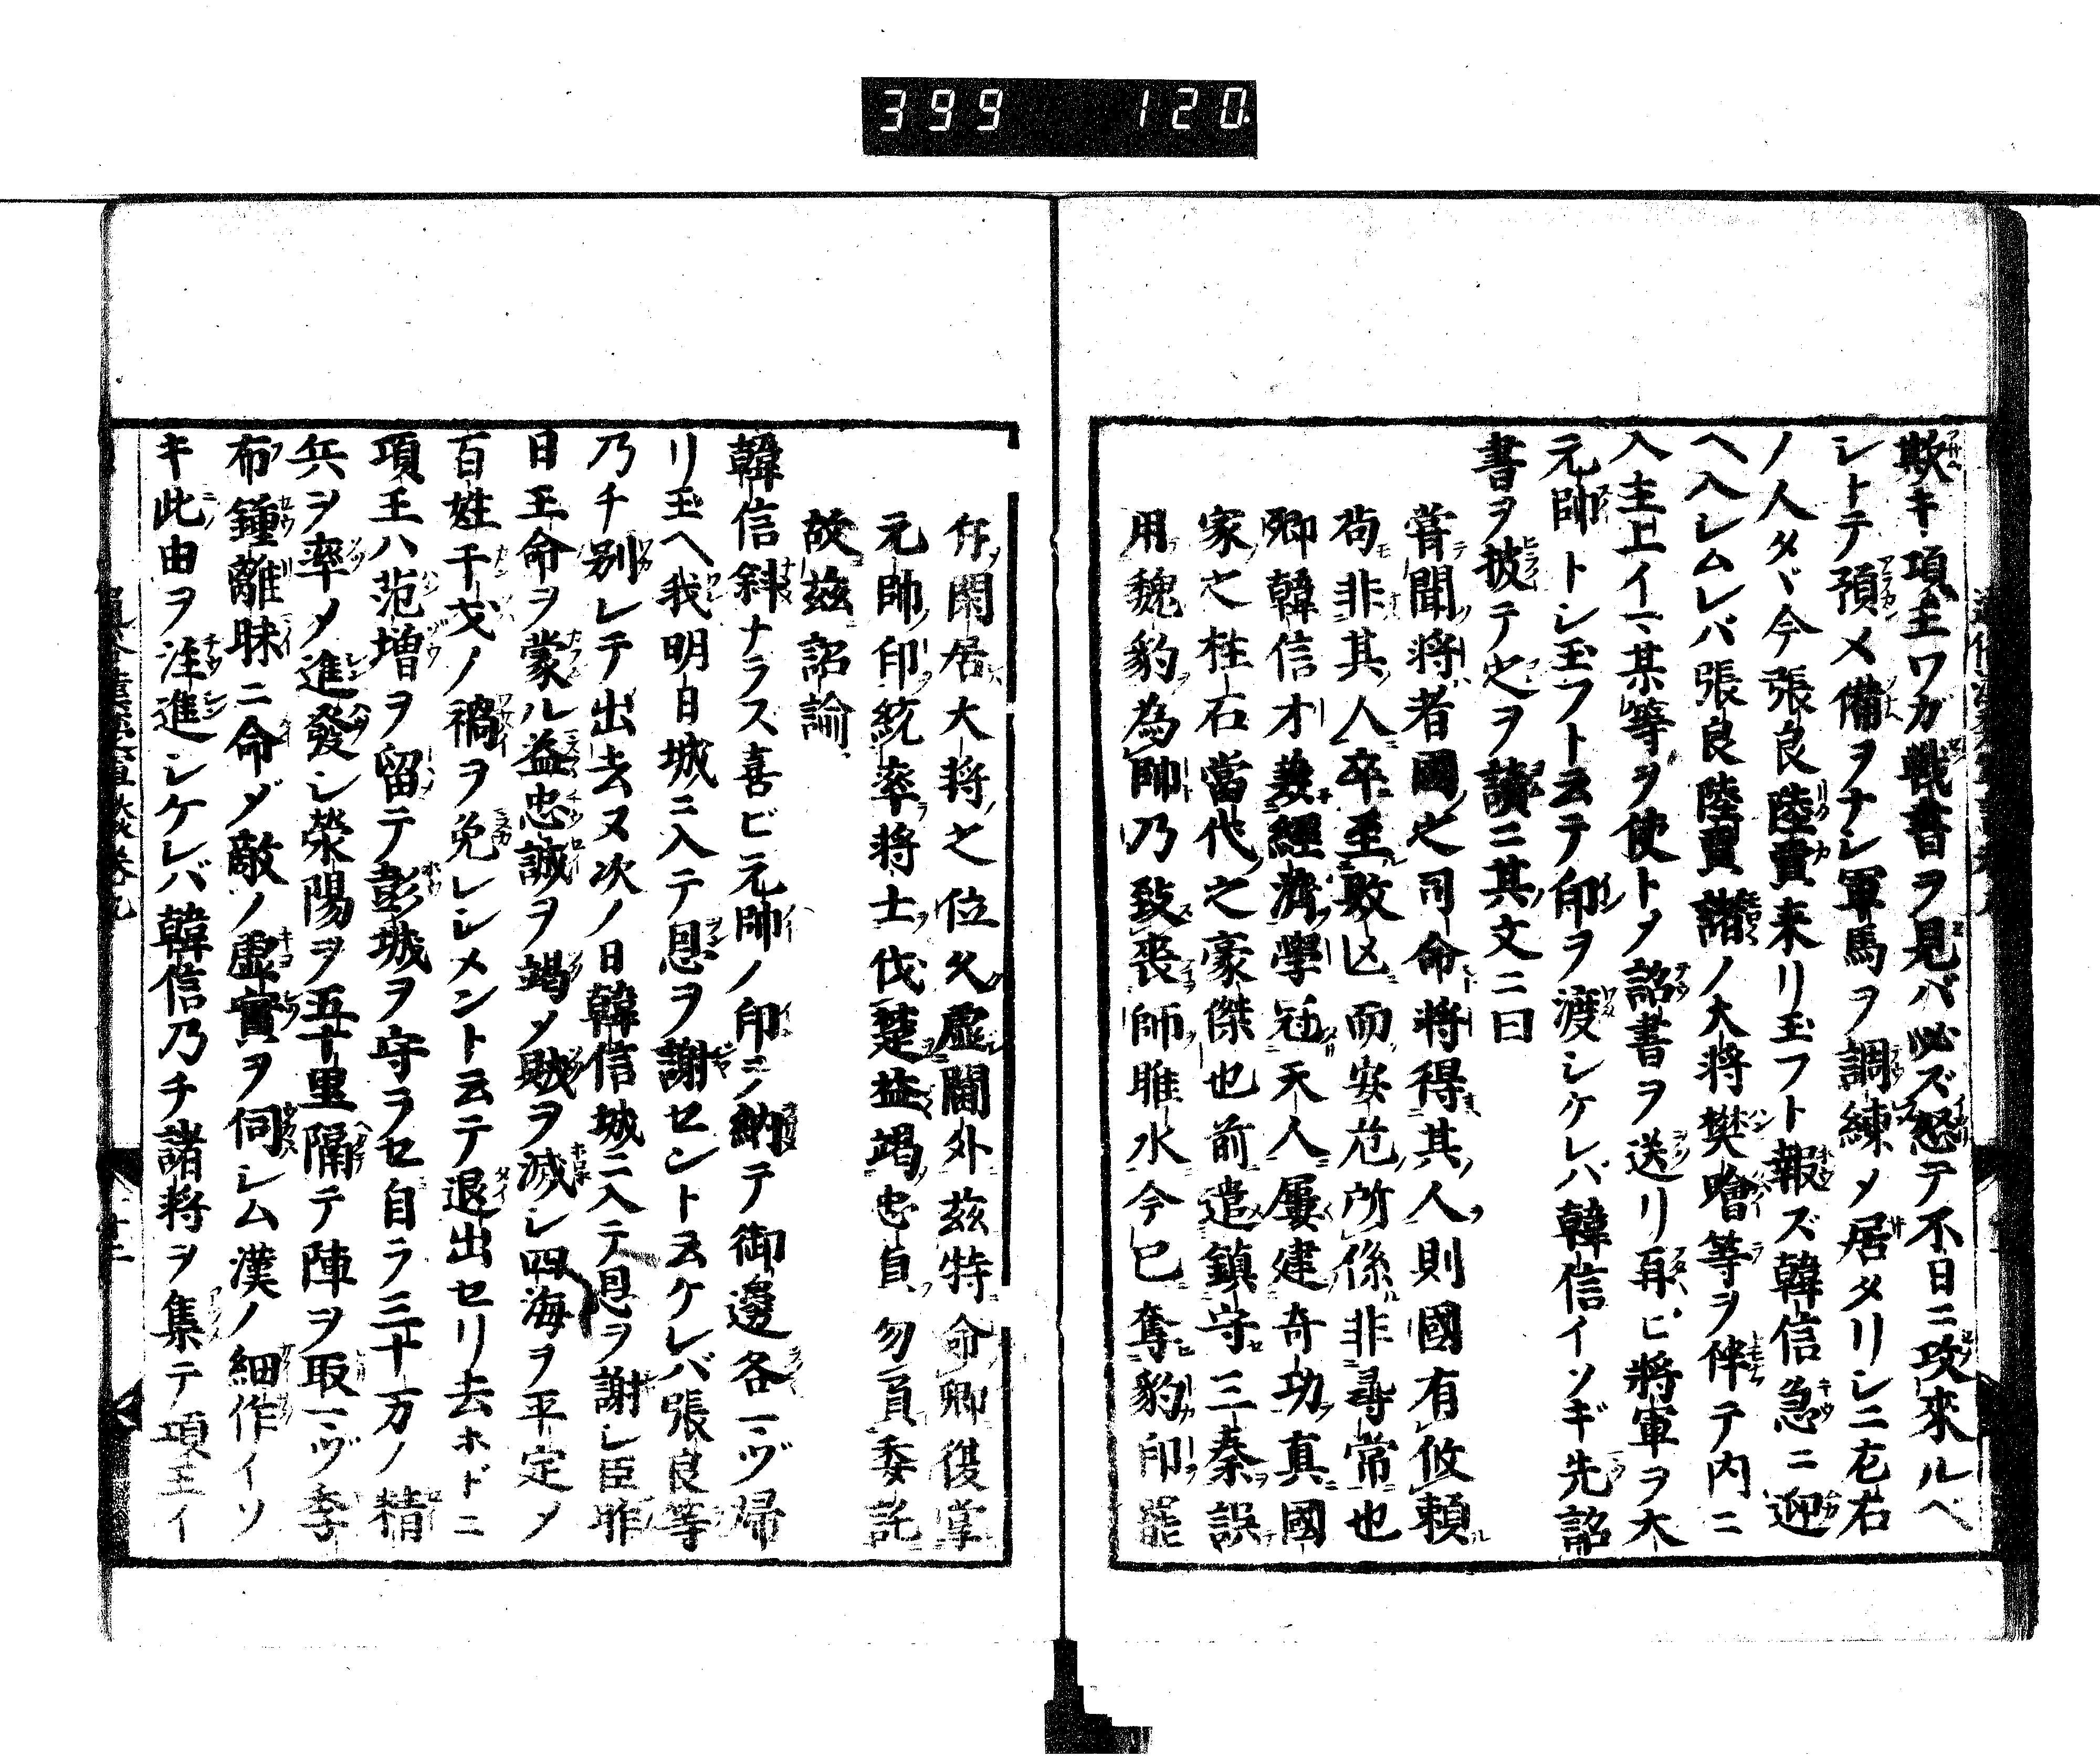 399 120
欺キ項王ワガ戰書ヲ見バ必ズ怒テ不日ニ攻來ルベ
シトテ預メ備ヲナシ軍馬ヲ調練メ居タリシニ左右
ノ人タヾ今張良陸賈来リ玉フト報ズ韓信急ニ迎
ヘ入レムレバ張良陸賈諸ノ大将樊噲等ヲ伴テ内ニ
入主上イマ某等ヲ使トメ詔書ヲ送リ再ビ將軍ヲ大
元帥トシ玉フト云テ印ヲ渡シケレバ韓信イソギ先詔
書ヲ披テ之ヲ讀ニ其文ニ曰
甞聞将者國之司命将得其人則國有攸頼
苟非其人卒至敗亡而安危所係非尋常也
卿韓信才兼經濟學冠天人屢建奇功真國
家之柱石當代之豪傑也前遣鎮守三秦誤
用魏豹為帥乃致喪師睢水今已奪豹印罷
存閑居大将之位久虚閫外茲特命卿復掌
元帥印統率将士伐楚益竭忠貞勿負委託
故茲詔諭
韓信斜ナラス喜ビ元帥ノ印ヲ納テ御邊各一ヅ帰
リ玉ヘ我明日城ニ入テ恩ヲ謝セント云ケレバ張良等
乃チ别レテ出去ヌ次ノ日韓信城ニ入テ恩ヲ謝レ臣昨
日王命ヲ蒙ル益忠誠ヲ竭メ賊ヲ滅シ四海ヲ平定メ
百姓干戈ノ禍ヲ免レシメント云テ退出セリ去ホドニ
項王ハ范増ヲ留テ彭城ヲ守ラセ自ラ三十万ノ精
兵ヲ率メ進發シ滎陽ヲ五十里隔テ陣ヲ取マヅ季
布鍾離昧ニ命ジ敵ノ虚實ヲ伺シム漢ノ細作イソ
キ此由ヲ注進シケレバ韓信乃チ諸将ヲ集テ項王イ